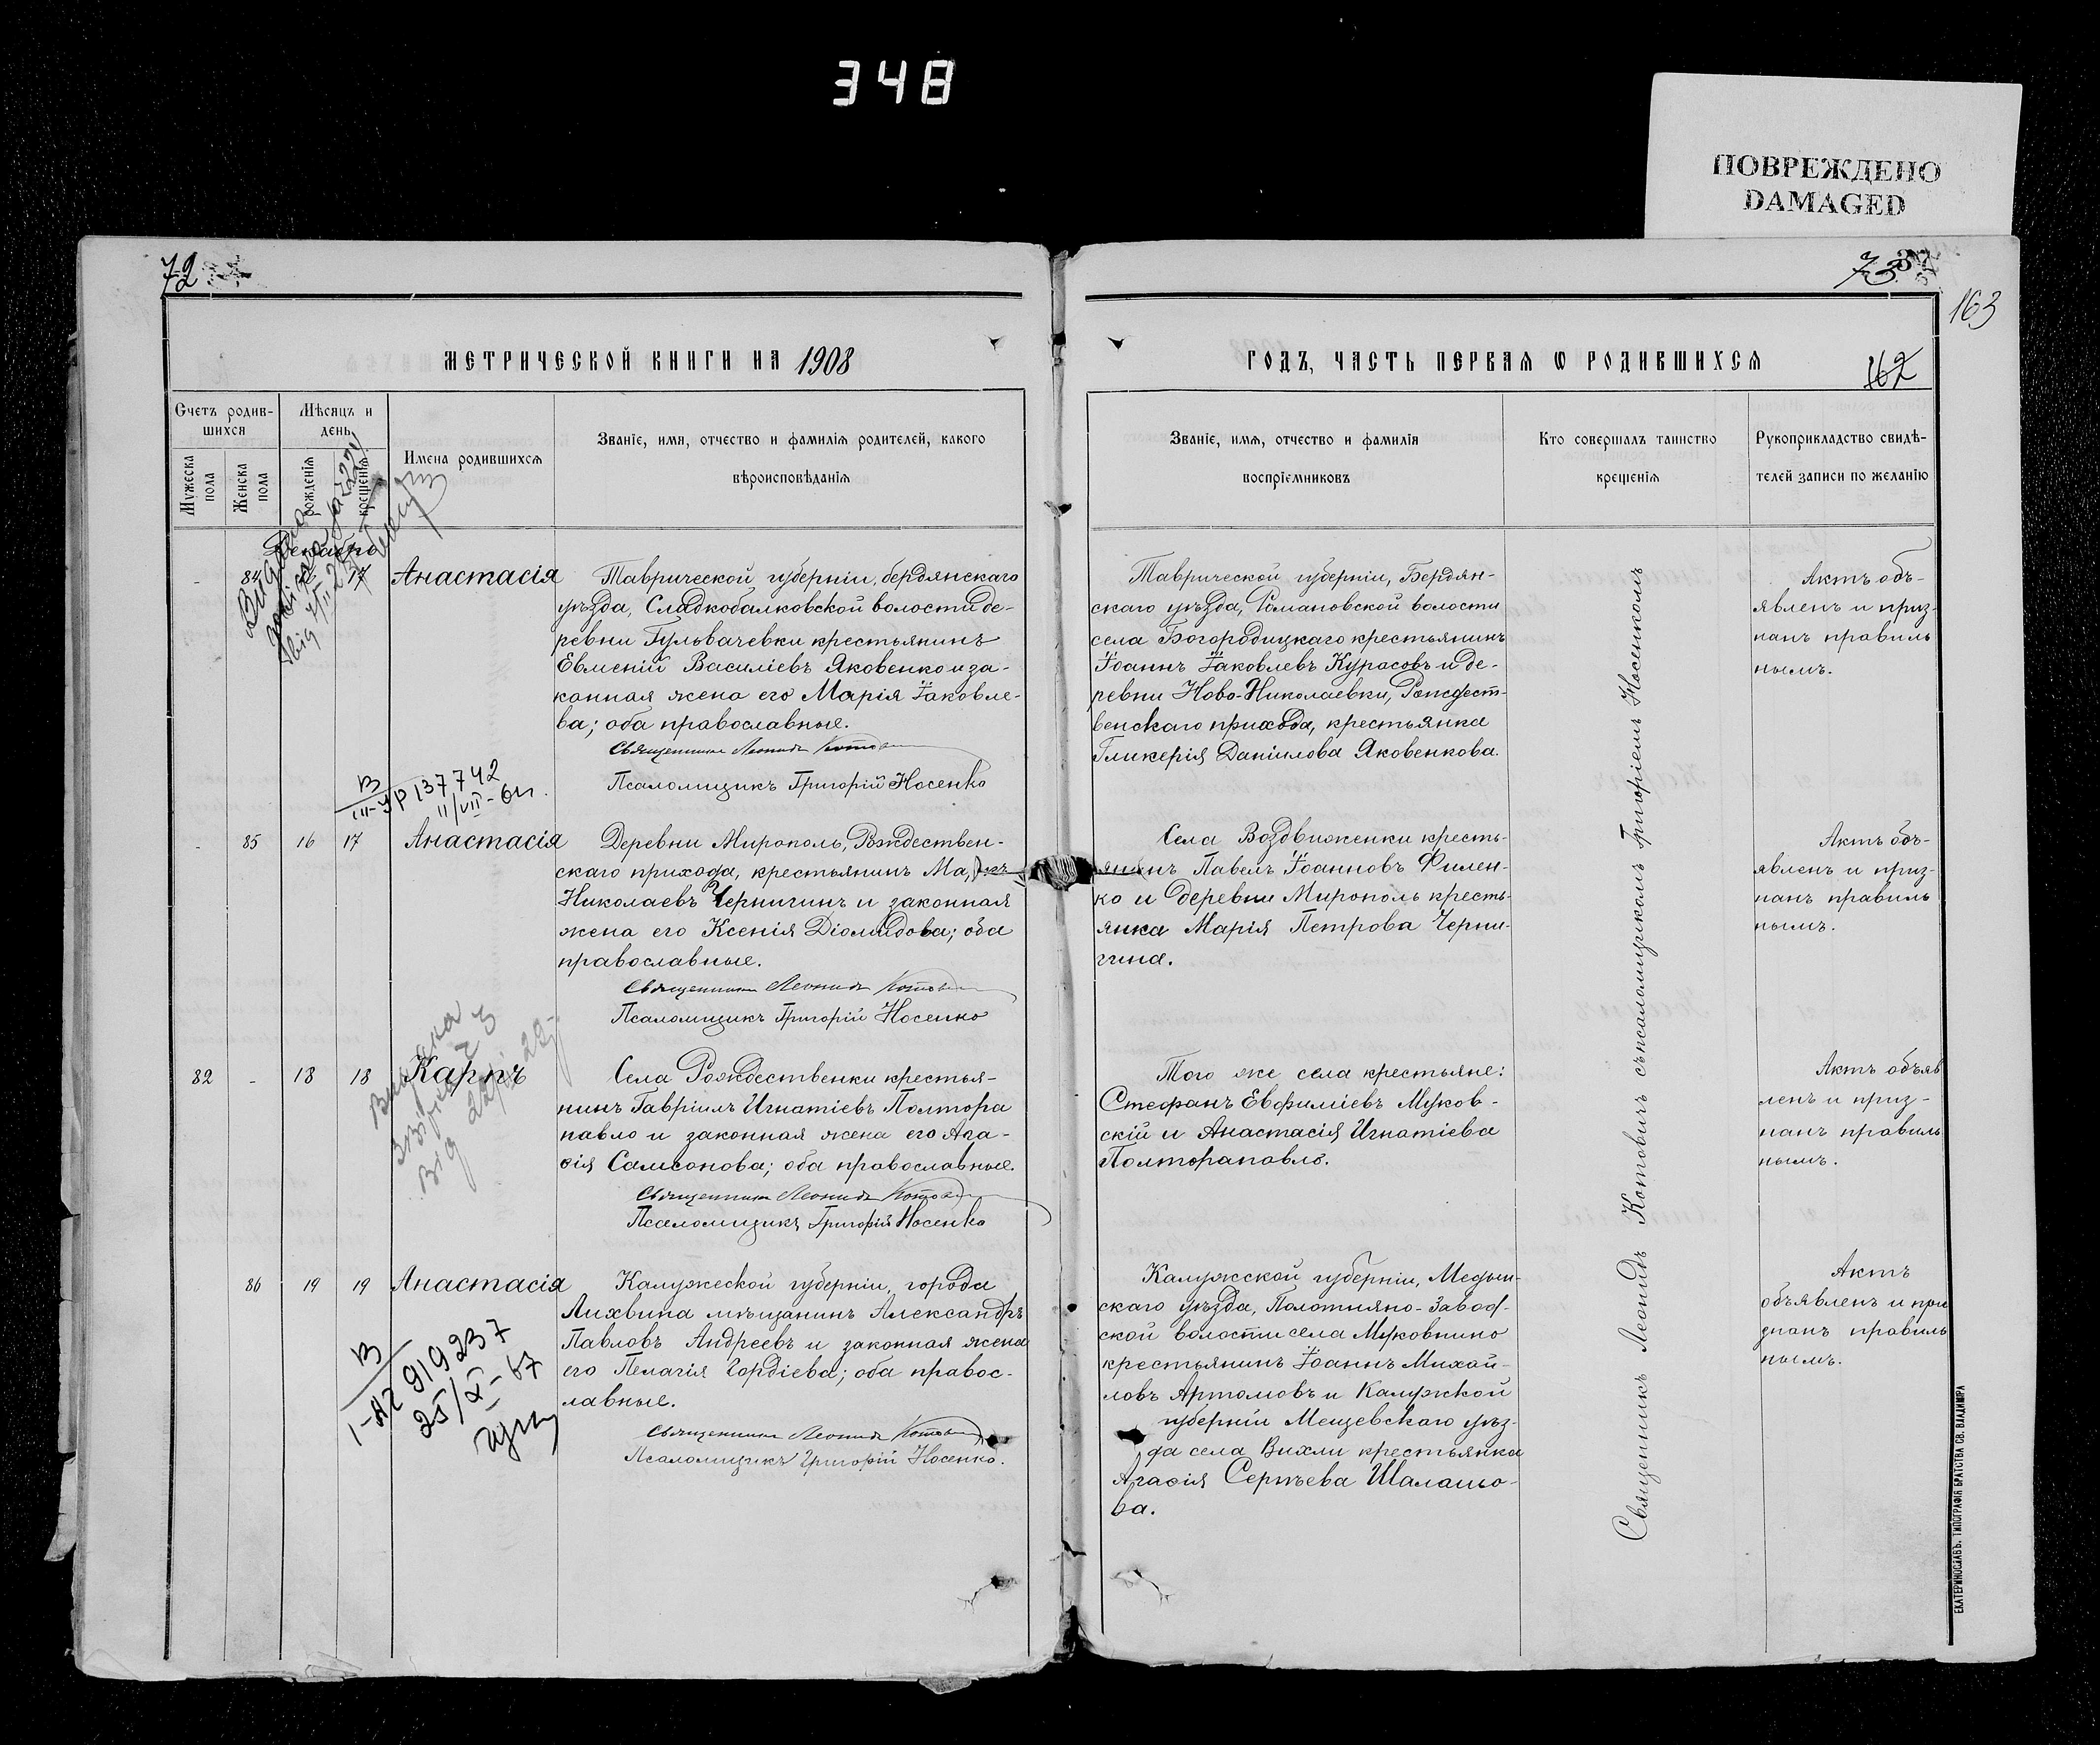 348
ПОВРЕЖДЕНО
DAMAGED
72
73
163
МЕТРИЧЕСКОЙ КНИГИ НА 1908
ГОДЪ, ЧАСТЬ ПЕРВАЯ Ѡ РОДИВШИХСЯ
162
Счетъ родив-
шихся
Мужеска пола
Женска пола
Мѣсяцъ и
день
рожденія
крещенія
Имена родившихся
Званіе, имя, отчество и фамилія родителей, какого
вѣроисповѣданія
Званіе, имя, отчество и фамилія
воспріемниковъ
Кто совершалъ таинство
крещенія
Рукоприкладство свидѣ-
телей записи по желанію
Декабрь
- 84 17 Анастасія
Таврической губерніи, бердянскаго
уѣзда, Сладкобалковской волости де-
ревни Гульвачевки крестьянинъ
Евменій Василіевъ Яковенко и за-
конная жена его Марія Іаковле-
ва; оба православные.
Священникъ Леонидъ Котович
Псаломщикъ Григорій Носенко
Таврической губерніи, Бердян-
скаго уѣзда, Романовской волости
села Богородицкаго крестьянинъ
Іоаннъ Іаковлевъ Курасовъ и де-
ревни Ново-Николаевки, Рождест-
венскаго прихода, крестьянка
Гликерія Даніилова Яковенкова.
Актъ объ-
явленъ и приз-
нанъ правиль
нымъ.
В
III-УР 137742
11/VII-61г.
- 85 16 17 Анастасія
Деревни Мирополь, Рождествен-
скаго прихода, крестьянинъ
Николаевъ Чернигинъ и законная
жена его Ксенія Діомидова; оба
православные.
Священникъ Леонидъ Котович
Псаломщикъ Григорій Носенко
Села Воздвиженки кресть-
янинъ Павелъ Іоанновъ Филен-
ко и деревни Мирополь кресть-
янка Марія Петрова Черни-
гина.
Актъ объ-
явленъ и приз-
нанъ правиль
нымъ.
82 - 18 18 Карпъ
Села Рождественки крестья-
нинъ Гавріилъ Игнатіевъ Полтора
павло и законная жена его Ага-
ѳія Самсонова; оба православные.
Священникъ Леонидъ Котович
Псаломщикъ Григорій Носенко
Того же села крестьяне:
Стефанъ Евфиміевъ Муков-
скій и Анастасія Игнатіева
Полторапавло.
Актъ объяв
ленъ и приз-
нанъ правиль
нымъ.
86 19 19 Анастасія
Калужской губерніи, города
Лихвина мѣщанинъ Александръ
Павловъ Андреевъ и законная жена
его Пелагія Гордіева; оба правос-
лавные.
Священникъ Леонидъ Котович
Псаломщикъ Григорій Носенко.
Калужской губерніи, Медын-
скаго уѣзда, Полотняно-Завод-
ской волости села Муковнино
крестьянинъ Іоаннъ Михай-
ловъ Артомовъ и Калужской
губерніи Мещевскаго уѣз-
да села Вихли крестьянка
Агаѳія Сергѣева Шалашо-
ва.
Актъ
объявленъ и при
знанъ правиль
нымъ.
В
I-АГ 919237
25/XI-67
Священникъ Леонидъ Котовичъ съ псаломщикомъ Григоріемъ Носенкомъ
ЕКАТЕРИНОСЛАВЪ. ТИПОГРАФІЯ БРАТСТВА СВ. ВЛАДИМІРА